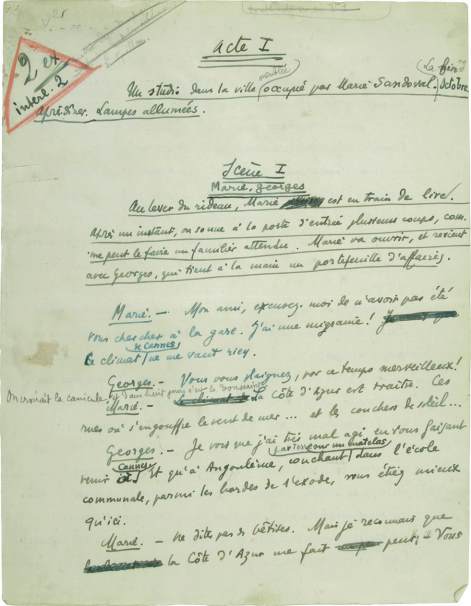 2 ex
interl. 2
Acte I
meublée
La fin
Un studio dans la ville occupé par Marie Sandoval. Octobre
après-dîner. Lampes allumées.
Scène I
Marie, Georges
Au lever du rideau, Marie est en train de lire.
Après un instant, on sonne à la porte d'entrée plusieurs coups, com-
me peut le faire un familier attendu. Marie va ouvrir, et revient
avec Georges, qui tient à la main un portefeuille d'affaires.
Marie. — Mon ami, excusez-moi de n'avoir pas été
vous chercher à la gare. J'ai une migraine!
de Cannes
Le climat ne me vaut rien.
Georges. — Vous vous plaignez, par ce temps merveilleux!
On se croirait la canicule
Marie. — La Côte d'Azur est traître. Ces
rues où s'engouffre le vent de mer ... et les couchers de soleil...
Georges. — Je vois que j'ai très mal agi en vous faisant
par terre sur un matelas
venir à Cannes et qu'à Angoulême, couchant dans l'école
communale, parmi les hordes de l'exode, vous étiez mieux
qu'ici.
Marie. — Ne dites pas de bêtises. Mais je reconnais que
la Côte d'Azur me fait peur. — Vous